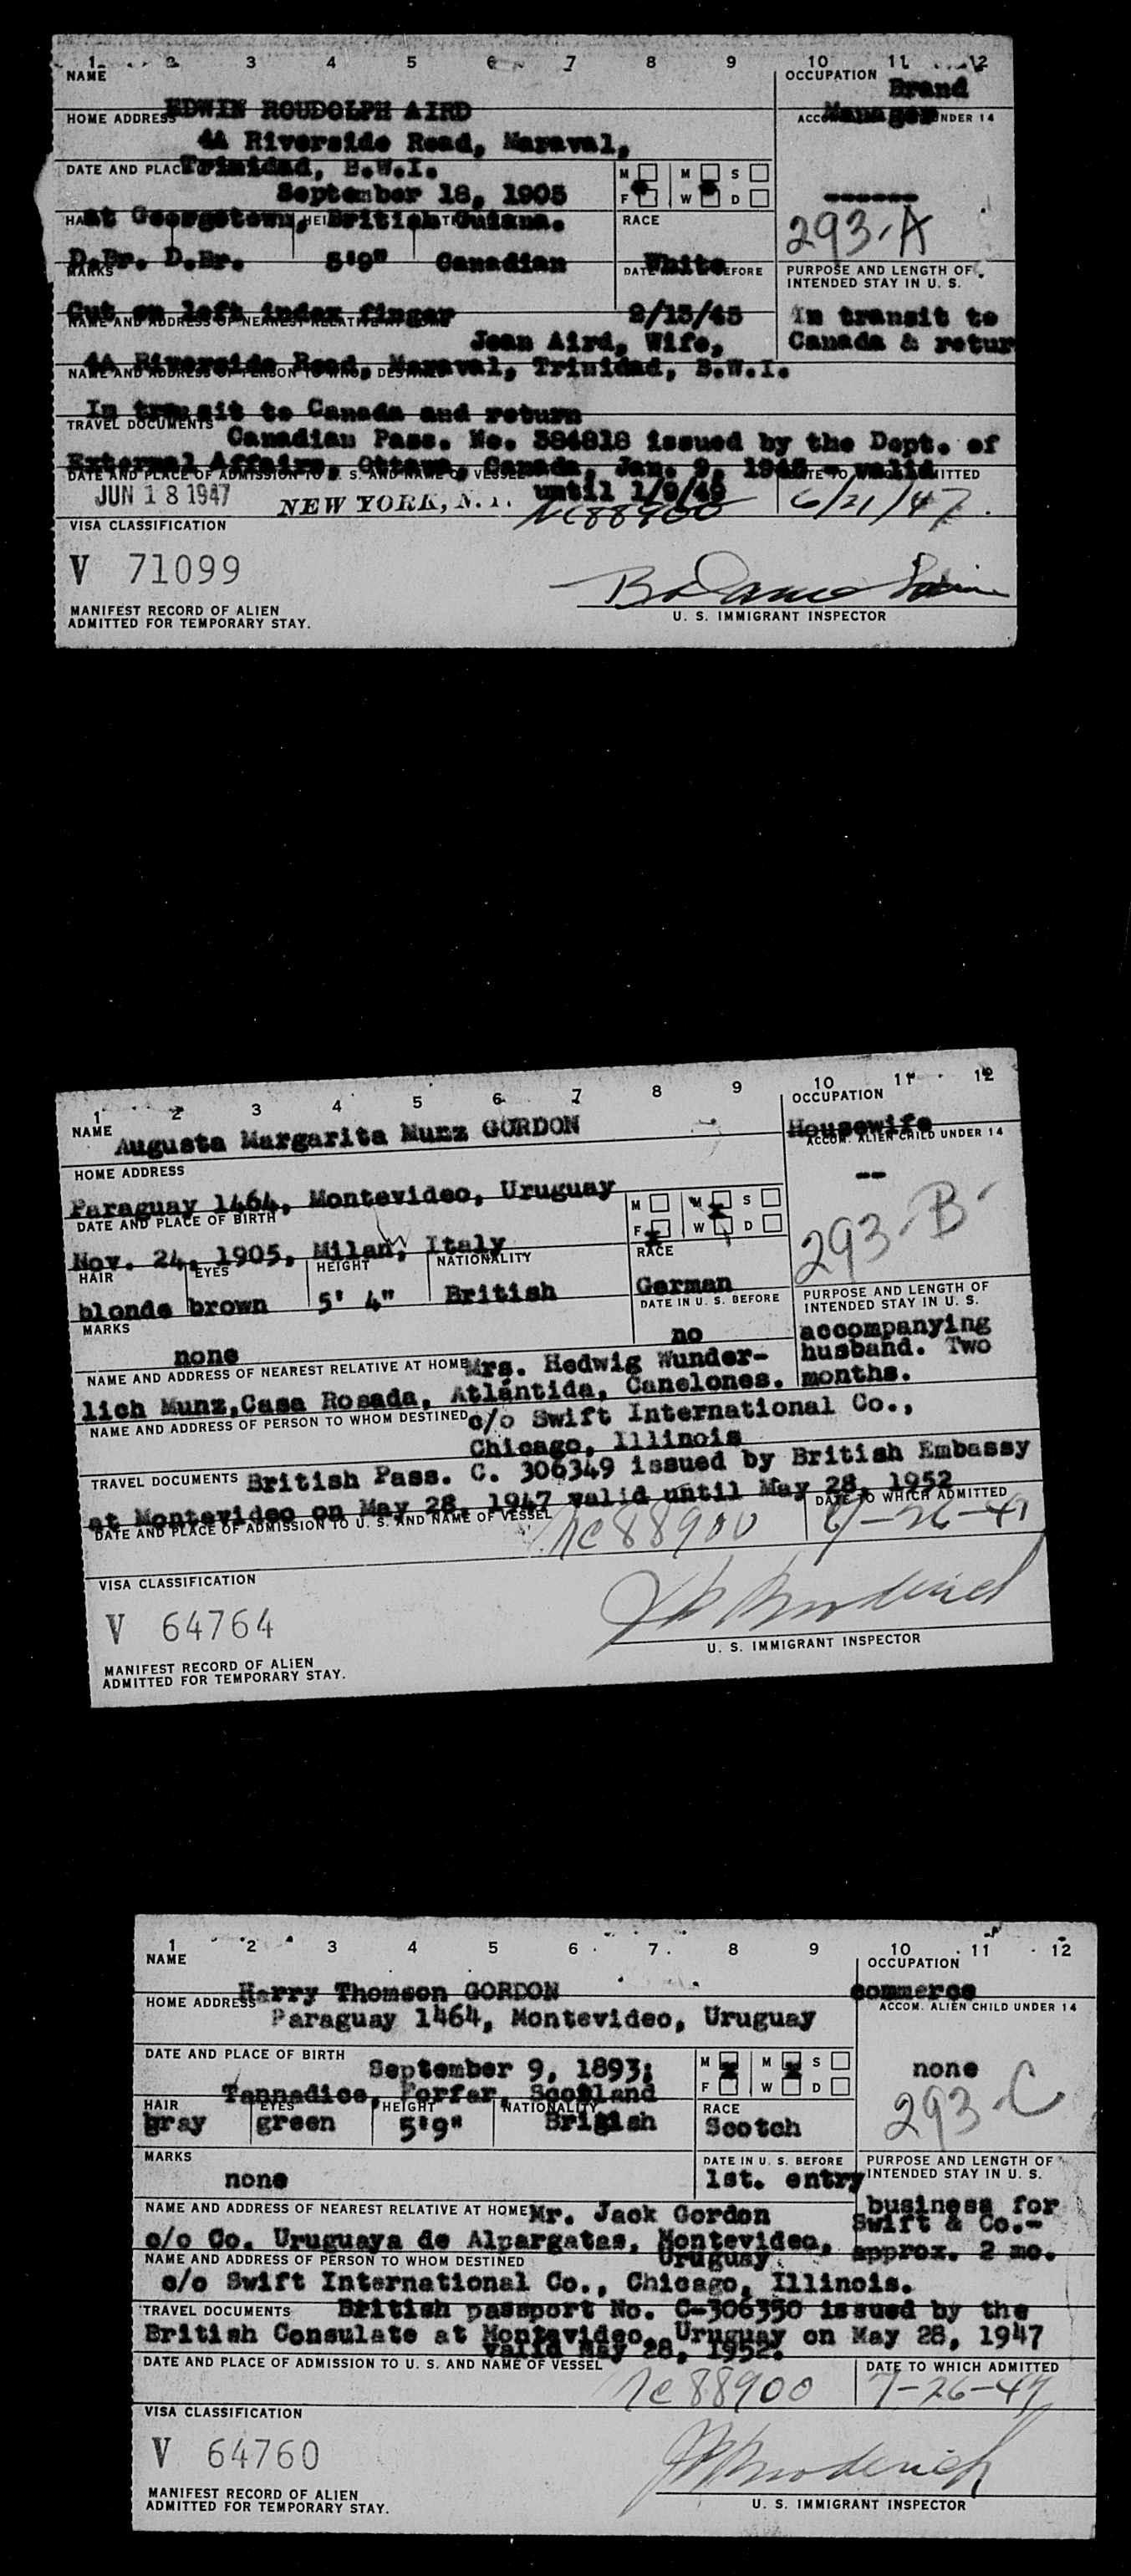 1 2 3 4 5 6 7 8 9 10 11 12
NAME
OCCUPATION Brand
EDWIN ROUDOLPH AIRD
Manager
HOME ADDRESS
ACCOM. UNDER 14
4A Riverside Road, Maraval,
DATE AND PLACE Trinidad, B.W.I.
M M S
September 18, 1905
F W D
------
at Georgetown, British Guiana.
RACE
293-A
D.Br. D.Br. 5'9" Canadian White
MARKS
DATE BEFORE
PURPOSE AND LENGTH OF
INTENDED STAY IN U. S.
Cut on left index finger 2/13/45 In transit to
NAME AND ADDRESS OF NEAREST RELATIVE AT HOME
Jean Aird, Wife, Canada & retur
4A Riverside Road, Maraval, Trinidad, B.W.I.
NAME AND ADDRESS OF PERSON TO WHOM DESTINED
In transit to Canada and return
TRAVEL DOCUMENTS
Canadian Pass. No. 384818 issued by the Dept. of
External Affairs, Ottawa, Canada, Jan. 9, 1946 - valid
DATE AND PLACE OF ADMISSION TO U. S. AND NAME OF VESSEL DATE TO ADMITTED
JUN 18 1947 NEW YORK, N.Y. until 1/9/49 6/21/47.
NC88900
VISA CLASSIFICATION
V 71099
MANIFEST RECORD OF ALIEN
ADMITTED FOR TEMPORARY STAY.
U. S. IMMIGRANT INSPECTOR
1 2 3 4 5 6 7 8 9 10 11 12
OCCUPATION
NAME Augusta Margarita Munz GORDON Housewife
ACCOM. ALIEN CHILD UNDER 14
HOME ADDRESS
--
Paraguay 1464, Montevideo, Uruguay
M M S
DATE AND PLACE OF BIRTH
F W D
293-B
Nov. 24, 1905, Milan, Italy
RACE
HAIR EYES HEIGHT NATIONALITY
blonde brown 5' 4" British German
DATE IN U. S. BEFORE
PURPOSE AND LENGTH OF
INTENDED STAY IN U. S.
MARKS
none no accompanying
NAME AND ADDRESS OF NEAREST RELATIVE AT HOME Mrs. Hedwig Wunder- husband. Two
lich Munz, Casa Rosada, Atlántida, Canelones. months.
NAME AND ADDRESS OF PERSON TO WHOM DESTINED c/o Swift International Co.,
Chicago, Illinois
TRAVEL DOCUMENTS British Pass. C. 306349 issued by British Embassy
at Montevideo on May 28, 1947 valid until May 28, 1952
DATE AND PLACE OF ADMISSION TO U. S. AND NAME OF VESSEL DATE TO WHICH ADMITTED
NC88900
VISA CLASSIFICATION
V 64764
U. S. IMMIGRANT INSPECTOR
MANIFEST RECORD OF ALIEN
ADMITTED FOR TEMPORARY STAY.
1 2 3 4 5 6 7 8 9 10 11 12
NAME
OCCUPATION
Harry Thomson GORDON commerce
HOME ADDRESS
ACCOM. ALIEN CHILD UNDER 14
Paraguay 1464, Montevideo, Uruguay
DATE AND PLACE OF BIRTH
September 9, 1893;
M M S
none
Tannadice, Forfar, Scotland
F W D
293-C
HAIR EYES HEIGHT NATIONALITY RACE
gray green 5'9" British Scotch
MARKS
DATE IN U. S. BEFORE
PURPOSE AND LENGTH OF
INTENDED STAY IN U. S.
none 1st. entry
NAME AND ADDRESS OF NEAREST RELATIVE AT HOME Mr. Jack Gordon business for
Swift & Co.-
c/o Co. Uruguaya de Alpargatas, Montevideo, approx. 2 mo.
NAME AND ADDRESS OF PERSON TO WHOM DESTINED Uruguay
c/o Swift International Co., Chicago, Illinois.
TRAVEL DOCUMENTS British passport No. C-306350 issued by the
British Consulate at Montevideo, Uruguay on May 28, 1947
valid May 28, 1952.
DATE AND PLACE OF ADMISSION TO U. S. AND NAME OF VESSEL DATE TO WHICH ADMITTED
NC88900 7-26-47
VISA CLASSIFICATION
V 64760
MANIFEST RECORD OF ALIEN
ADMITTED FOR TEMPORARY STAY.
U. S. IMMIGRANT INSPECTOR